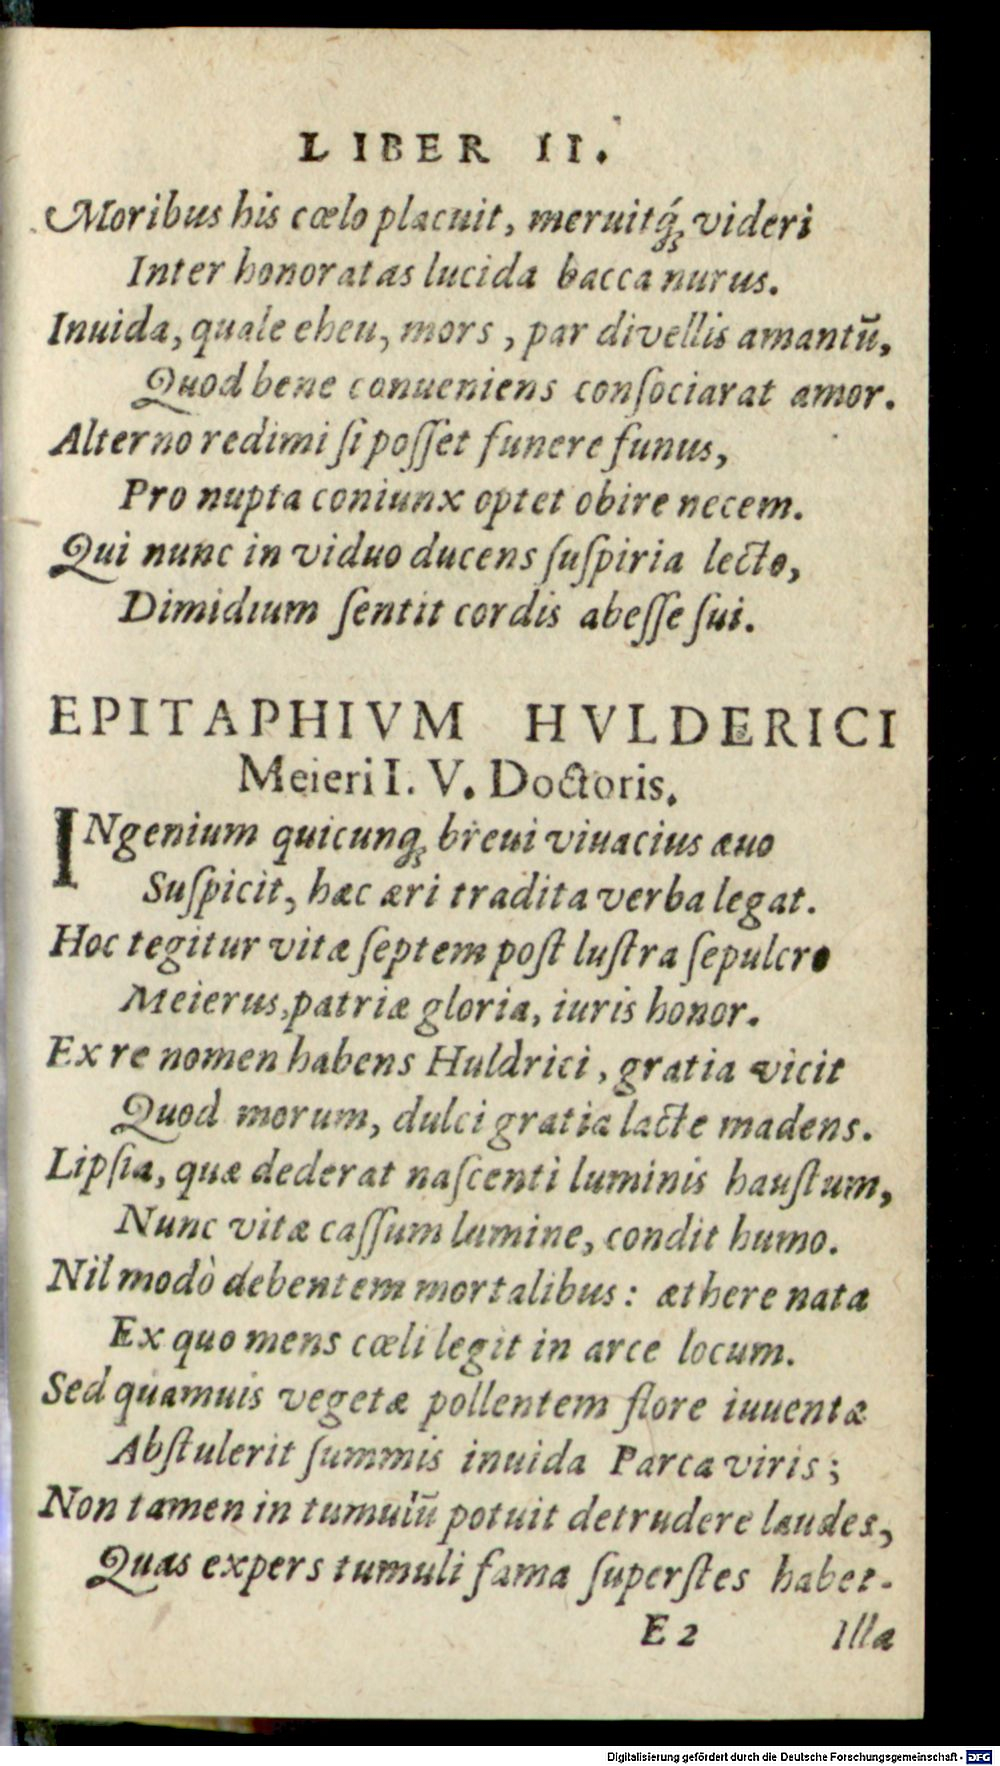 LIBER II.
Moribus his cœlo placuit, meruitq́; videri
Inter honoratas lucida bacca nurus.
Inuida, quale eheu, mors, par divellis amantū,
Quod bene conueniens conſociarat amor.
Alterno redimi ſi poſſet funere funus,
Pro nupta coniunx optet obire necem.
Qui nunc in viduo ducens ſuſpiria lecto,
Dimidium ſentit cordis abeſſe ſui.
EPITAPHIVM HVLDERICI
Meieri I. V. Doctoris.
INgenium quicunq; breui viuacius æuo
Suſpicit, hæc æri tradita verba legat.
Hoc tegitur vitæ ſeptem poſt luſtra ſepulcro
Meierus, patriæ gloria, iuris honor.
Ex re nomen habens Huldrici, gratia vicit
Quod morum, dulci gratia lacte madens.
Lipſia, quæ dederat naſcenti luminis hauſtum,
Nunc vitæ caſſum lumine, condit humo.
Nil modò debentem mortalibus: æthere nata
Ex quo mens cœli legit in arce locum.
Sed quamuis vegetæ pollentem flore iuuentæ
Abſtulerit ſummis inuida Parca viris;
Non tamen in tumulū potuit detrudere laudes,
Quas expers tumuli fama ſuperſtes habet.
E 2 Illa
Digitalisierung gefördert durch die Deutsche Forschungsgemeinschaft - DFG